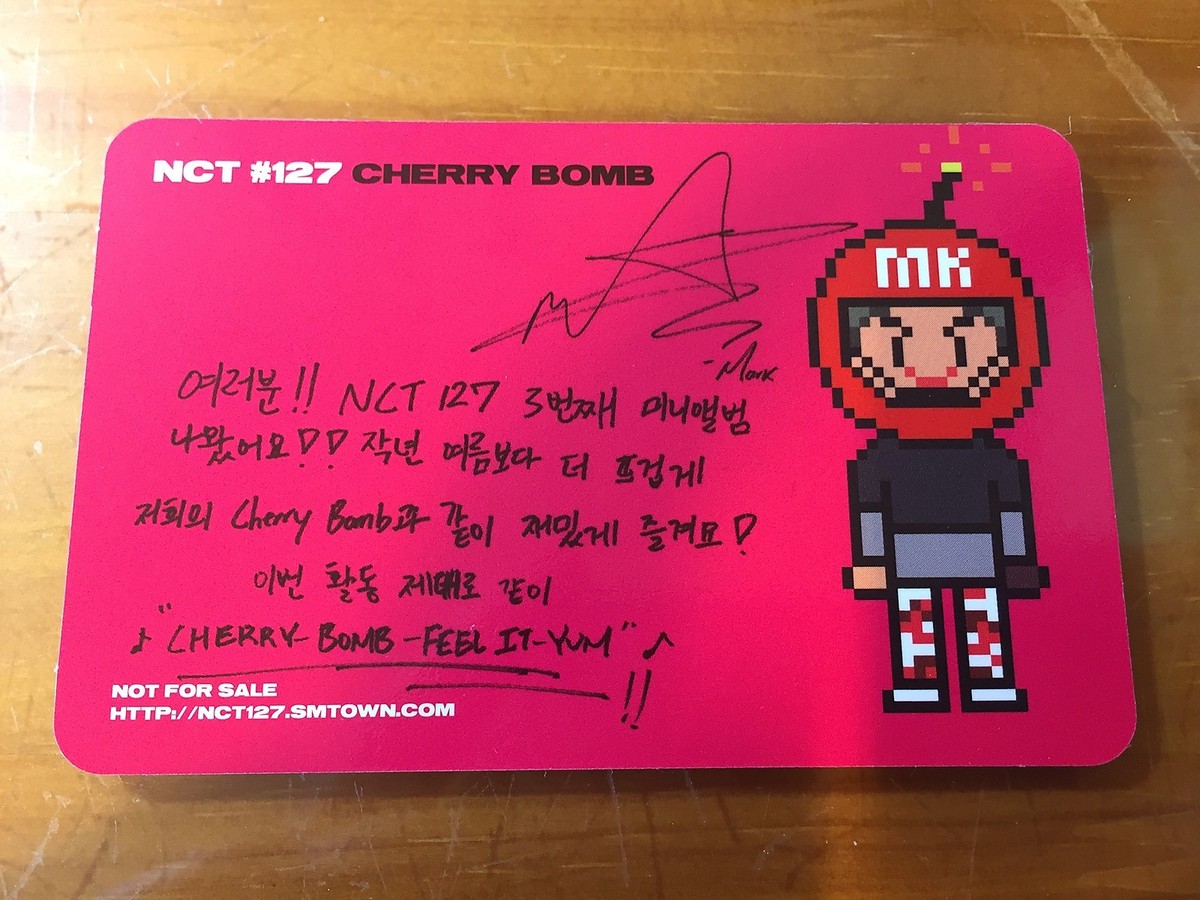 NCT #127 CHERRY BOMB
MK
-Mark
여러분!! NCT 127 3번째 미니앨범
나왔어요!! 작년 여름보다 더 뜨겁게
저희의 Cherry Bomb과 같이 재밌게 즐겨요!
이번 활동 제대로 같이
♪ "CHERRY-BOMB-FEEL IT-YUM" ♪
!!
NOT FOR SALE
HTTP://NCT127.SMTOWN.COM